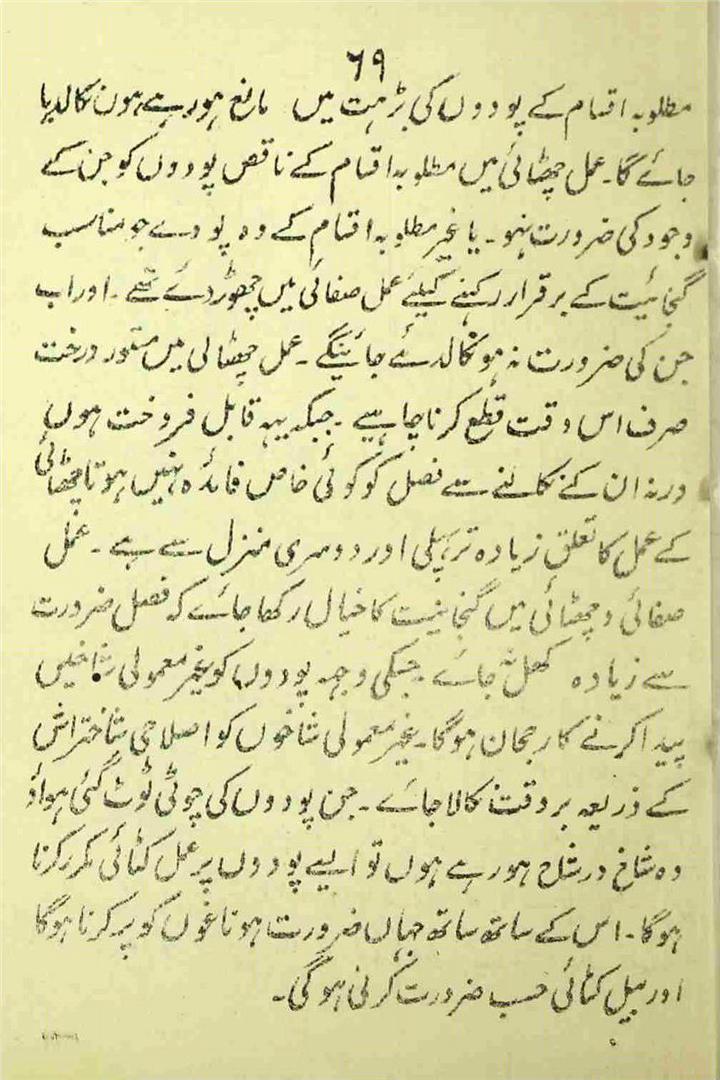 ۶۹
مطلوبہ اقسام کے پودوں کی بڑہت میں مانع ہورہے ہون نکالدیا
جائے گا۔ عمل چھٹائی میں مطلوبہ اقسام کے ناقص پودوں کو جن کے
وجود کی ضرورت نہو۔ یا غیر مطلوبہ اقسام کے وہ پودے جو مناسب
گنجائیت کے برقرار رکہنے کیلئے عمل صفائی میں چھوڑ دئے تھے۔ اور اب
جن کی ضرورت نہ ہو نکالدئے جائینگے۔ عمل چھٹائی میں درخت
صرف اس وقت قطع کرنا چاہیے۔ جبکہ یہہ قابل فروخت ہوں
ورنہ ان کے نکالنے سے فصل کو کوئی خاص فائدہ نہیں ہوتا چھٹائی
کے عمل کا تعلق زیادہ تر پہلی اور دوسری منزل سے ہے۔ عمل
صفائی و چھٹائی میں گنجائیت کا خیال رکھا جائے کہ فصل ضرورت
سے زیادہ کھل نہ جائے۔ جسکی وجہہ پودوں کو غیر معمولی شاخیں
پیدا کرنے کا رجحان ہوگا۔ غیر معمولی شاخوں کو اصلاحی شاختراش
کے ذریعہ بروقت نکالا جائے۔ جن پودوں کی چوٹی ٹوٹ گئی ہو اور
وہ شاخ در شاخ ہورہے ہوں تو ایسے پودوں پر عمل کٹائی مکرر کرنا
ہوگا۔ اس کے ساتھ ساتھ جہاں ضرورت ہو ناغوں کو پر کرنا ہوگا
اور بیل کٹائی حسب ضرورت کرنی ہوگی۔